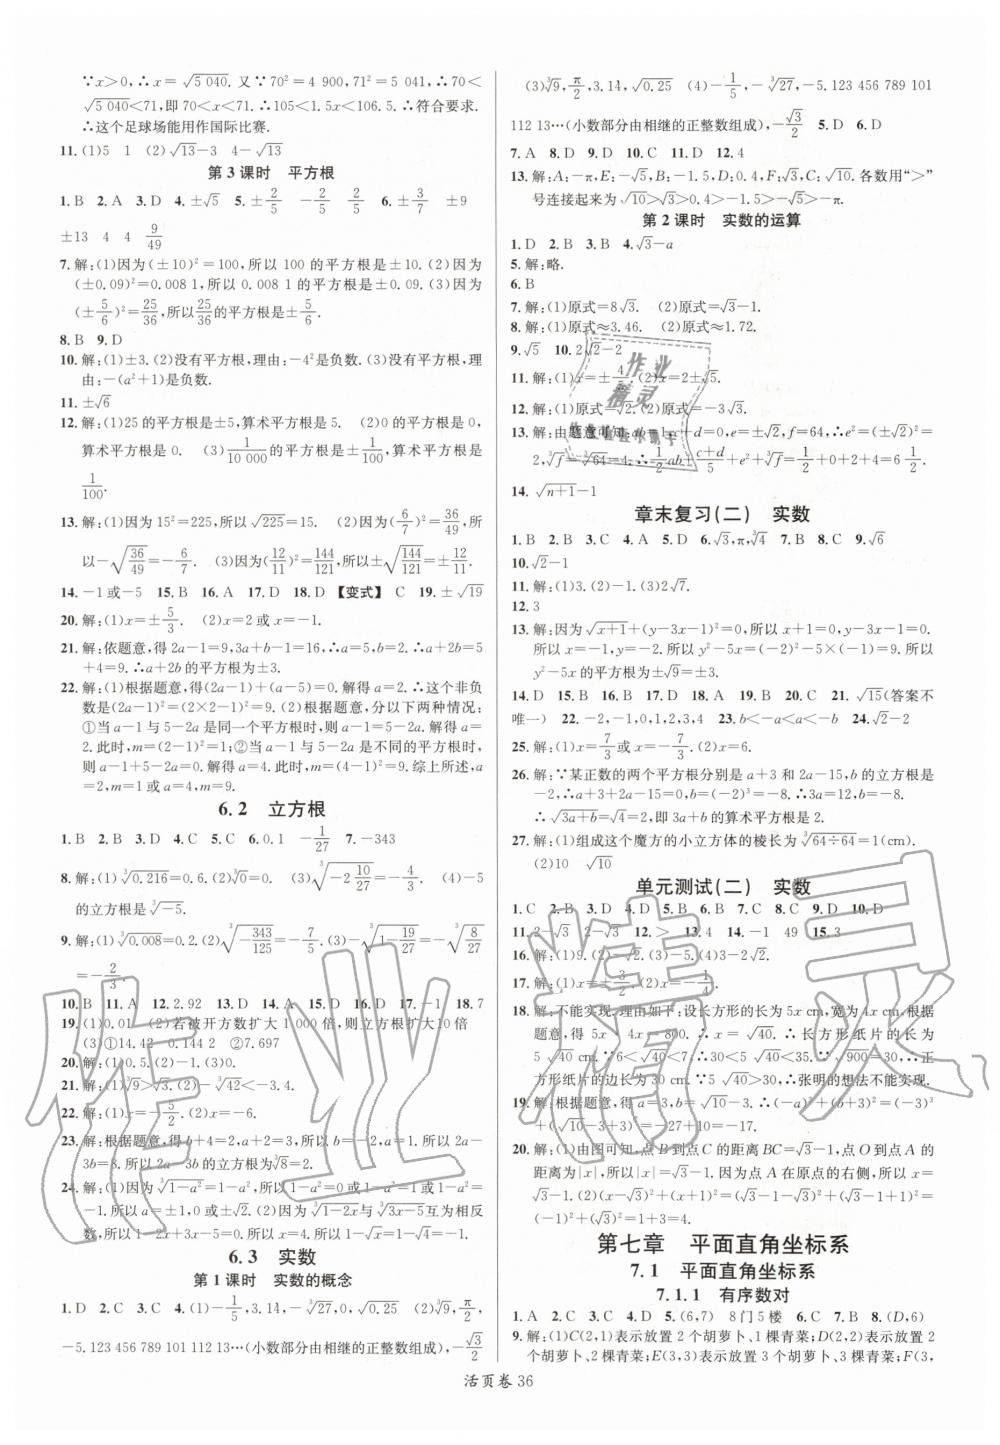 ∵x>0,∴x=√5 040. 又∵70²=4 900,71²=5 041,∴70<
√5 040<71,即 70<x<71.∴105<1.5x<106.5.∴符合要求.
∴这个足球场能用作国际比赛.
11.(1)5 1 (2)√13-3 4-√13
第 3 课时 平方根
1.B 2.A 3.D 4.±√5 5.±2/5 -2/5 2/5 6.±3/7 ±9
±13 4 4 9/49
7.解:(1)因为(±10)²=100,所以 100 的平方根是±10.(2)因为
(±0.09)²=0.008 1,所以 0.008 1 的平方根是±0.09.(3)因为
(±5/6)²=25/36,所以25/36的平方根是±5/6.
8.B 9.D
10.解:(1)±3.(2)没有平方根,理由:-4²是负数.(3)没有平方根,理
由:-(a²+1)是负数.
11.±√6
12.解:(1)25的平方根是±5,算术平方根是 5. (2)0 的平方根是 0,
算术平方根是 0. (3)1/10 000的平方根是±1/100,算术平方根是
1/100.
13.解:(1)因为 15²=225,所以√225=15. (2)因为(6/7)²=36/49,所
以-√(36/49)=-6/7. (3)因为(12/11)²=144/121,所以±√(144/121)=±12/11.
14.-1或-5 15.B 16.A 17.D 18.D 【变式】 C 19.±√19
20.解:(1)x=±5/3. (2)x=2或 x=-1.
21.解:依题意,得 2a-1=9,3a+b-1=16,∴a=5,b=2.∴a+2b=5
+4=9.∴a+2b 的平方根为±3.
22.解:(1)根据题意,得(2a-1)+(a-5)=0.解得 a=2.∴这个非负
数是(2a-1)²=(2×2-1)²=9. (2)根据题意,分以下两种情况:
①当 a-1 与 5-2a 是同一个平方根时,则 a-1=5-2a. 解得 a=
2.此时,m=(2-1)²=1;②当 a-1 与 5-2a 是不同的平方根时,
则 a-1+5-2a=0.解得 a=4.此时,m=(4-1)²=9.综上所述,a
=2,m=1或 a=4,m=9.
6.2 立方根
1.B 2.B 3.D 4.C 5.C 6.0.1 -1/27 7.-343
8.解:(1)∛0.216=0.6.(2)∛0=0. (3)∛(-2 10/27)=-4/3. (4)-5
的立方根是∛-5.
9.解:(1)∛0.008=0.2.(2)∛(-343/125)=-7/5.(3)∛(-1-19/27)=∛(-8/27)
=-2/3.
10.B 11.A 12.2,92 13.D 14.A 15.D 16.D 17.-1 18.7
19.(1)0.01 (2)若被开方数扩大 1 000 倍,则立方根扩大10倍
(3)①14.42 0.144 2 ②7.697
20.解:(1)0.5.(2)-1.(3)0.
21.解:(1)∛9>√3.(2)-∛42<-3.4.
22.解:(1)x=-5/2.(2)x=-6.
23.解:根据题意,得 b+4=2,a+2=3,所以 b=-2,a=1.所以 2a-
3b=8.所以 2a-3b 的立方根为∛8=2.
24.解:(1)因为∛1-a²=1-a²,所以 1-a²=0或 1-a²=1或 1-a²=
-1.所以 a=±1,0或±√2. (2)因为∛1-2x与∛3x-5互为相反
数,所以 1-2x+3x-5=0,所以 x=4.所以 1-√x=1-√4=-1.
6.3 实数
第 1 课时 实数的概念
1.D 2.C 3.C 4.(1)-1/5,3.14,-∛27,0,√0.25 (2)∛9,π/2,
-5.123 456 789 101 112 13…(小数部分由相继的正整数组成),-√3/2
(3)∛9,π/2,3.14,√0.25 (4)-1/5,-∛27,-5.123 456 789 101
112 13…(小数部分由相继的正整数组成),-√3/2 5.D 6.D
7.A 8.D 9.D 10.C 11.D 12.4
13.解:A:-π,E:-√5,B:-1.5,D:0.4,F:√3,C:√10.各数用“>”
号连接起来为√10>√3>0.4>-1.5>-√5>-π.
第 2 课时 实数的运算
1.D 2.B 3.B 4.√3-a
5.解:略.
6.B
7.解:(1)原式=8√3. (2)原式=√3-1.
8.解:(1)原式≈3.46. (2)原式≈1.72.
9.√5 10.2√2-2
11.解:(1)x=±√4.(2)x=2±√5.
12.解:(1)原式=√2.(2)原式=-3√3.
13.解:由题意可知:ab=1,c+d=0,e=±√2,f=64,∴e²=(±√2)²=
2,∛f=∛64=4.∴1/2ab+(c+d)/5+e²+∛f=1/2+0+2+4=6 1/2.
14.√n+1-1
章末复习(二) 实数
1.B 2.B 3.C 4.A 5.D 6.√3,π,∛4 7.B 8.C 9.√6
10.√2-1
11.解:(1)3.(2)-1.
12.3
13.解:因为√x+1+(y-3x-1)²=0,所以 x+1=0,y-3x-1=0.
所以 x=-1,y=-2.所以 y²-5x=(-2)²-5×(-1)=9.所以
y²-5x的平方根为±√9=±3.
14.D 15.B 16.B 17.D 18.A 19.B 20.C 21.√15(答案不
唯一) 22.-2,-1,0,1,2,3,4 23.b<-a<a<-b 24.√2-2
25.解:(1)x=7/3或 x=-7/3.(2)x=6.
26.解:∵某正数的两个平方根分别是 a+3 和 2a-15,b 的立方根是
-2,∴a+3+2a-15=0,b=(-2)³=-8.∴3a=12,b=-8.
∴√3a+b=√4=2,即 3a+b 的算术平方根是 2.
27.解:(1)组成这个魔方的小立方体的棱长为∛64÷64=1(cm).
(2)10 √10
单元测试(二) 实数
1.C 2.B 3.D 4.D 5.D 6.B 7.C 8.C 9.D 10.D
11.2-√3 2-√3 12.> 13.4 14.-1 49 15.3
16.解:(1)9.(2)-√2.(3)-5.(4)3-√2.
18.解:不能实现.理由如下:设长方形的长为 5x cm,宽为 4x cm.根据
题意,得 5x·4x=800.∴x=√40.∴长方形纸片的长为
5√40 cm.∵6<√40<7,∴30<5√40<35.∵√900=30,∴正
方形纸片的边长为 30 cm.∵5√40>30,∴张明的想法不能实现.
19.解:根据题意,得 a=3,b=√10-3.∴(-a)³+(b+3)²=(-3)³
+(√10-3+3)²=-27+10=-17.
20.解:(1)由图可知,点 B 到点 C 的距离 BC=√3-1,点 O 到点 A 的
距离为|x|,所以|x|=√3-1. 因为点 A 在原点的右侧,所以 x=
√3-1.(2)(x-√3)²+(x+1)²=(√3-1-√3)²+(√3-1+1)²=
(-1)²+(√3)²=1+3=4.
第七章 平面直角坐标系
7.1 平面直角坐标系
7.1.1 有序数对
1.A 2.C 3.D 4.C 5.(6,7) 8门5楼 6.C 7.B 8.(D,6)
9.解:(1)C(2,1)表示放置 2 个胡萝卜、1 棵青菜;D(2,2)表示放置
2 个胡萝卜、2 棵青菜;E(3,3)表示放置 3 个胡萝卜、3 棵青菜;F(3,
活页卷 36
作业精灵